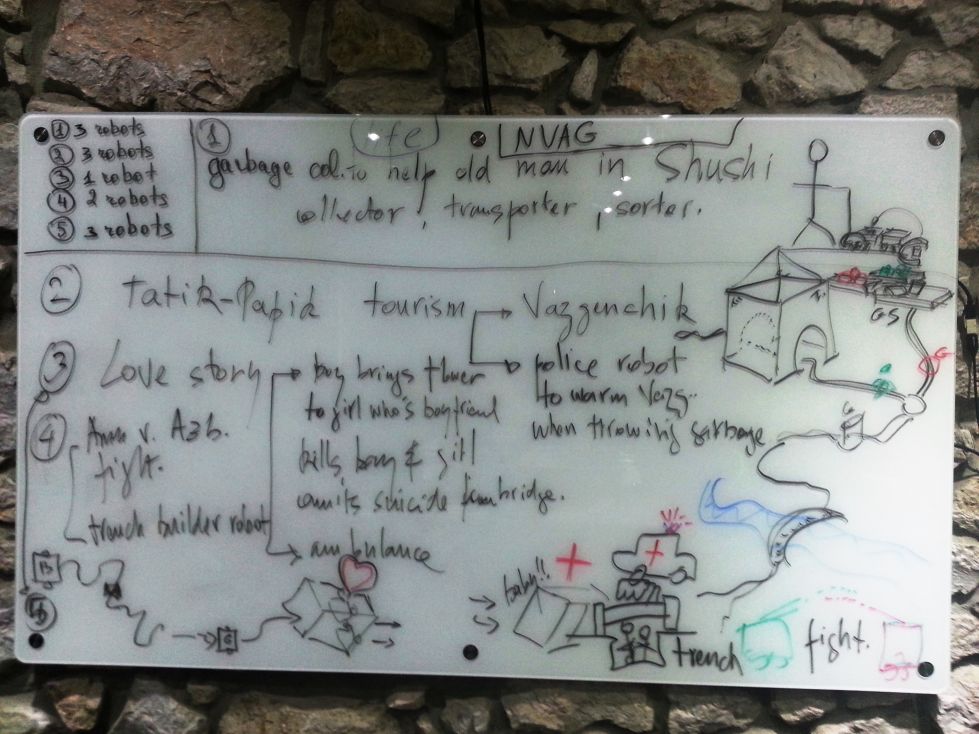 ① 3 robots
② 3 robots
③ 1 robot
④ 2 robots
⑤ 3 robots
①
Life NVAG
garbage col. to help old man in Shushi
collector, transporter, sorter.
② Tatik-Papik tourism Vazgenchik
police robot
to warm Vazg.
when throwing garbage
③ Love story boy brings flower
to girl who's boyfriend
kills boy & girl
comits suicide from bridge.
④ v. Azb.
fight.
trench builder robot
ambulance
B
⑤
C
baby!!
trench
fight.
GS
G
G